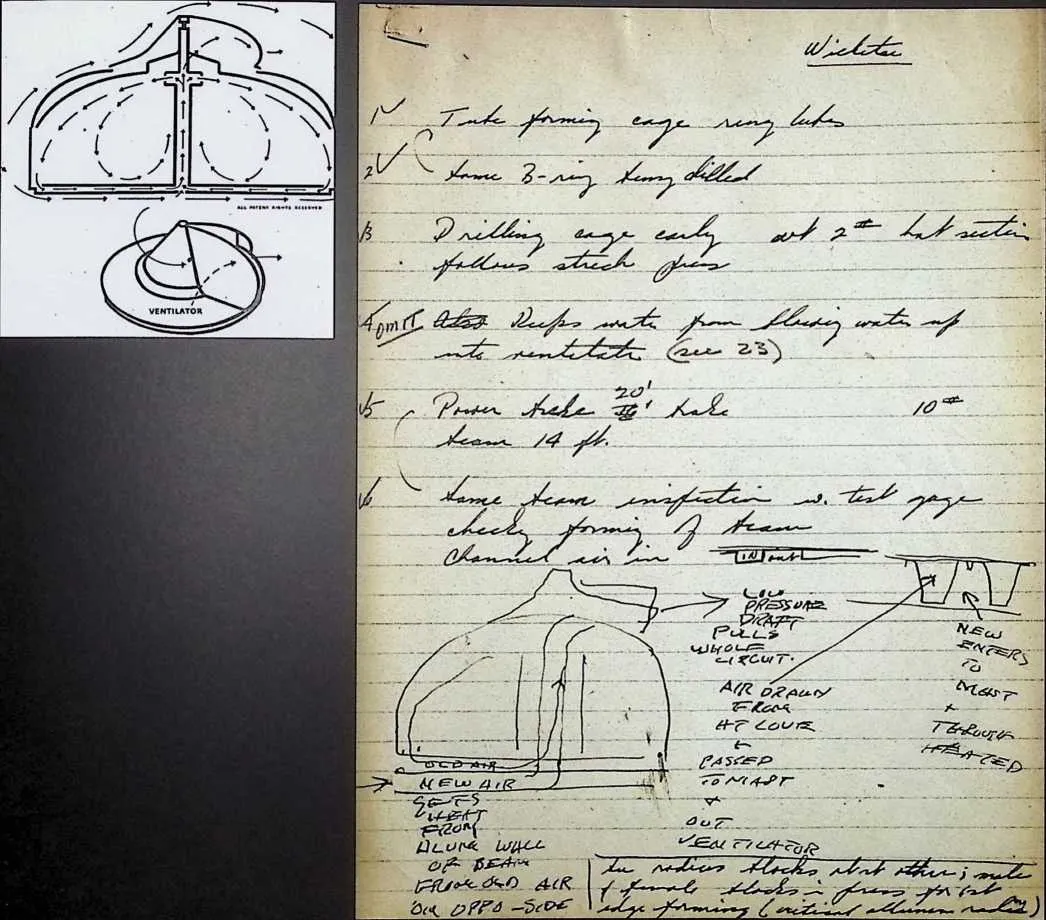 ALL PATENT RIGHTS RESERVED
VENTILATOR
Wichita
1 Tube forming cage ring tubes
2 Same B-ring being drilled
3 Drilling cage early 2nd
follows stretch press
4 OMIT Also Keeps water from blowing water up
into ventilator (see 23)
5 Power brake 20' brake 10#
beam 14 ft.
6 Same beam inspection w. test gage
checking forming of beam
Channel air in
LOW
PRESSURE
DRAFT
PULLS
WHOLE
CIRCUIT.
AIR DRAWN
FROM
+
PASSED
TO MAST
+
OUT
VENTILATOR
NEW
ENTERS
TO
MAST
+
THROUGH
HEATED
OLD AIR
NEW AIR
GETS
HEAT
FROM
ALONG WALL
OF BEAM
FROM OLD AIR
ON OPPO-SIDE
radius blocks other; male
& female blocks in press for
edge forming (critical